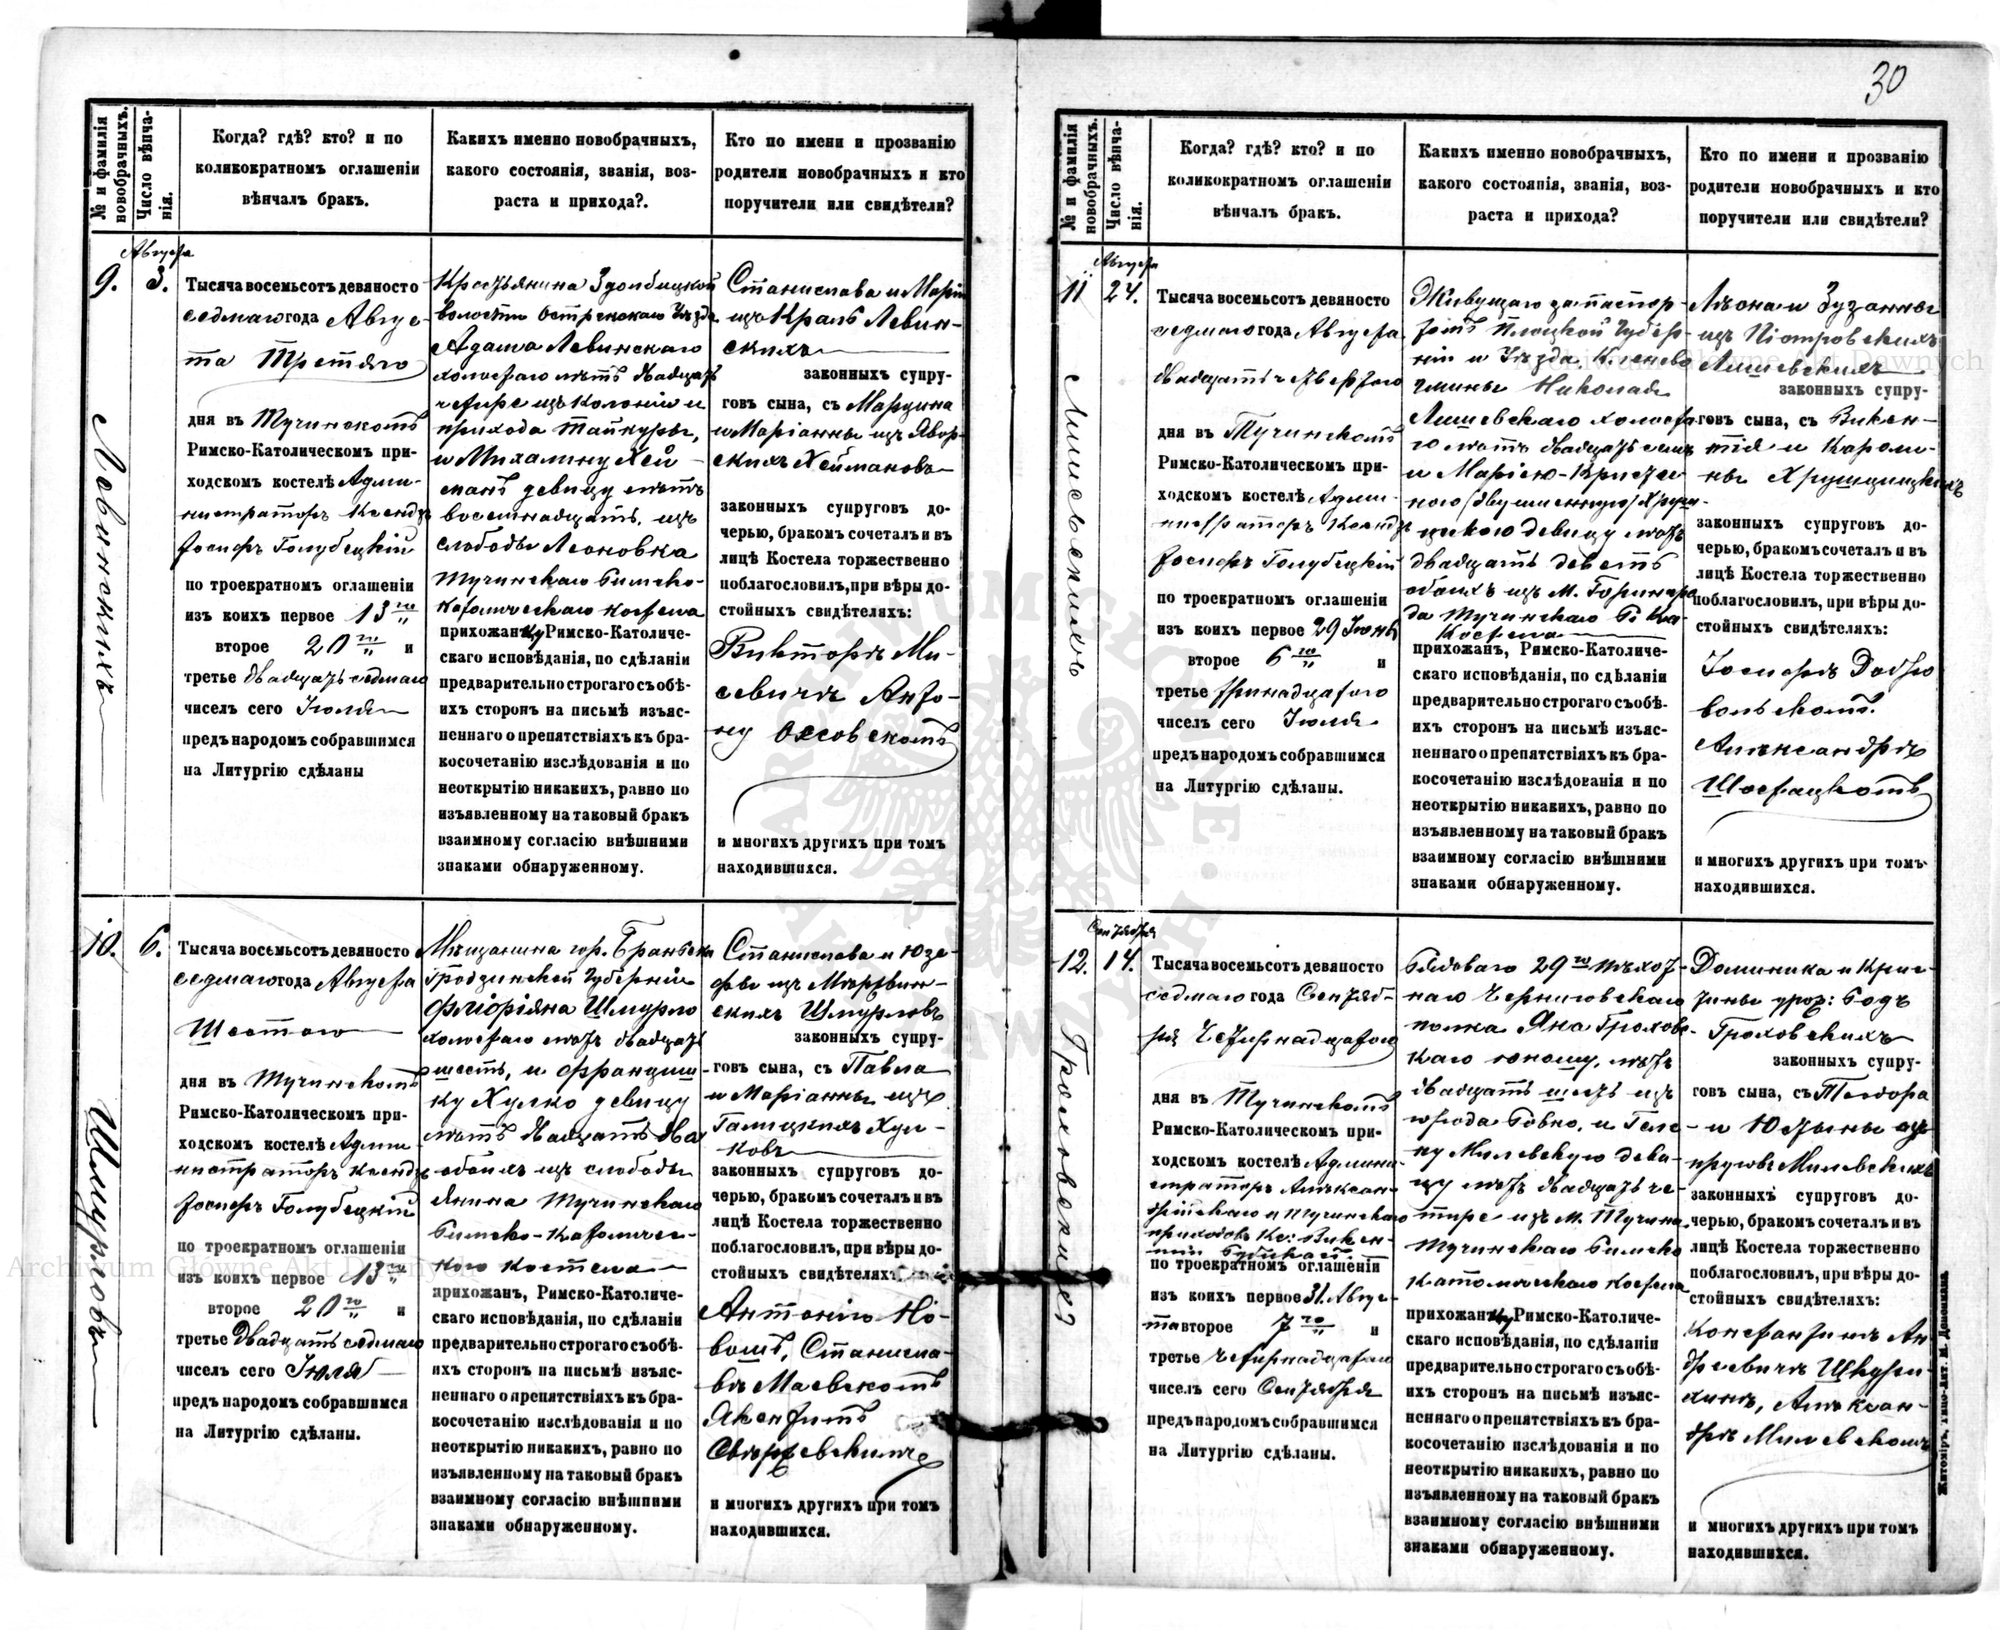 30
№ и фамилія новобрачныхъ.
Число вѣнча-
нія.
Когда? гдѣ? кто? и по
коликократномъ оглашеніи
вѣнчалъ бракъ.
Какихъ именно новобрачныхъ,
какого состоянія, званія, воз-
раста и прихода?.
Кто по имени и прозванію
родители новобрачныхъ и кто
поручители или свидѣтели?
9.
Августа
3.
Левинскихъ
Тысяча восемьсотъ девяносто
седмаго года Авгус-
та Третяго
дня въ Тучинскомъ
Римско-Католическомъ при-
ходскомъ костелѣ Адми-
нистраторъ Ксендзъ
Іосифъ Голубецкій
по троекратномъ оглашеніи
изъ коихъ первое 13го
второе 20го и
третье двадцать седмаго
чиселъ сего Іюля
предъ народомъ собравшимся
на Литургію сдѣланы
Крестьянина Здолбицкой
волости Острожскаго Уѣзда
Адама Левинскаго
холостаго лѣтъ двадцать
четыре изъ Колоніи и
прихода Тайкуры,
и Михалину Хей-
манъ девицу лѣтъ
восемнадцать, изъ
слободы Леоновка
Тучинскаго Римско-
Католическаго костела
прихожанку Римско-Католиче-
скаго исповѣданія, по сдѣланіи
предварительно строгаго съ обѣ-
ихъ сторонъ на письмѣ изъяс-
неннаго о препятствіяхъ къ бра-
косочетанію изслѣдованія и по
неоткрытію никакихъ, равно по
изъявленному на таковый бракъ
взаимному согласію внѣшними
знаками обнаруженному.
Станислава и Маріи
изъ Краль Левин-
скихъ
законныхъ супру-
говъ сына, съ Мартина
и Маріанны изъ Явор-
скихъ Хеймановъ
законныхъ супруговъ до-
черью, бракомъ сочеталъ и въ
лицѣ Костела торжественно
поблагословилъ, при вѣры до-
стойныхъ свидѣтеляхъ:
Викторъ Ми-
севичъ Анто-
ну
и многихъ другихъ при томъ
находившихся.
10.
6.
Шмурловъ
Тысяча восемьсотъ девяносто
седмаго года Августа
Шестого
дня въ Тучинскомъ
Римско-Католическомъ при-
ходскомъ костелѣ Адми-
нистраторъ Ксендзъ
Іосифъ Голубецкій
по троекратномъ оглашеніи
изъ коихъ первое 13го
второе 20го и
третье Двадцать седмаго
чиселъ сего Іюля
предъ народомъ собравшимся
на Литургію сдѣланы.
Мѣщанина гор. Бранска
Гродзинской Губерніи
Флоріяна Шмурло
холостаго лѣтъ двадцать
шесть, и Францишку
Хулко девицу
лѣтъ двадцать два
обоихъ изъ слободы
Янина Тучинскаго
Римско-Католичес-
кого костела
прихожанъ, Римско-Католиче-
скаго исповѣданія, по сдѣланіи
предварительно строгаго съ обѣ-
ихъ сторонъ на письмѣ изъяс-
неннаго о препятствіяхъ къ бра-
косочетанію изслѣдованія и по
неоткрытію никакихъ, равно по
изъявленному на таковый бракъ
взаимному согласію внѣшними
знаками обнаруженному.
Станислава и Юзе-
фы изъ
Шмурловъ
законныхъ супру-
говъ сына, съ Павла
и Маріанны изъ
Галицкихъ Хул-
ковъ
законныхъ супруговъ до-
черью, бракомъ сочеталъ и въ
лицѣ Костела торжественно
поблагословилъ, при вѣры до-
стойныхъ свидѣтеляхъ
Антонію
Станисла-
въ Маевскомъ
и многихъ другихъ при томъ
находившихся.
№ и фамилія новобрачныхъ.
Число вѣнча-
нія.
Когда? гдѣ? кто? и по
коликократномъ оглашеніи
вѣнчалъ бракъ.
Какихъ именно новобрачныхъ,
какого состоянія, званія, воз-
раста и прихода?
Кто по имени и прозванію
родители новобрачныхъ и кто
поручители или свидѣтели?
11
Августа
24.
Тысяча восемьсотъ девяносто
седмаго года Августа
двадцать четвертого
дня въ Тучинскомъ
Римско-Католическомъ при-
ходскомъ костелѣ Адми-
нистраторъ Ксендзъ
Іосифъ Голубецкій
по троекратномъ оглашеніи
изъ коихъ первое 29 Іюня
второе 6го и
третье тринадцатого
чиселъ сего Іюля
предъ народомъ собравшимся
на Литургію сдѣланы.
Живущаго за паспор-
томъ Плоцкой Губер-
ніи и Уѣзда,
гмины Николая
холоста-
го лѣтъ двадцать семь
и Марію-Кристи-
девицу лѣтъ
двадцать девять
обоихъ изъ М.
Тучинскаго Р. К.
Костела
прихожанъ, Римско-Католиче-
скаго исповѣданія, по сдѣланіи
предварительно строгаго съ обѣ-
ихъ сторонъ на письмѣ изъяс-
неннаго о препятствіяхъ къ бра-
косочетанію изслѣдованія и по
неоткрытію никакихъ, равно по
изъявленному на таковый бракъ
взаимному согласію внѣшними
знаками обнаруженному.
Леона и Зузанны
изъ Піотровскихъ
законныхъ супру-
говъ сына, съ Викен-
тія и Кароли-
ны
законныхъ супруговъ до-
черью, бракомъ сочеталъ и въ
лицѣ Костела торжественно
поблагословилъ, при вѣры до-
стойныхъ свидѣтеляхъ:
Іосифъ Добро-
вольскомъ.
Александръ
и многихъ другихъ при томъ
находившихся.
12.
Сентября
14.
Гроховскихъ
Тысяча восемьсотъ девяносто
седмаго года Сентяб-
ря Четырнадцатого
дня въ Тучинскомъ
Римско-Католическомъ при-
ходскомъ костелѣ Админи-
страторъ Алексан-
дрійскаго и Тучинскаго
приходовъ Кс: Викен-
тій
по троекратномъ оглашеніи
изъ коихъ первое 31 Авгус-
та второе 7го и
третье четырнадцатого
чиселъ сего Сентября
предъ народомъ собравшимся
на Литургію сдѣланы.
Рядоваго 29го пѣхот-
наго Черниговскаго
полка Яна Грохов-
скаго юношу, лѣтъ
двадцать шесть изъ
города Ровно, и Геле-
ну Милевскую деви-
цу лѣтъ двадцать че-
тыре изъ М. Тучина
Тучинскаго Римско
католическаго костела
прихожанку Римско-Католиче-
скаго исповѣданія, по сдѣланіи
предварительно строгаго съ обѣ-
ихъ сторонъ на письмѣ изъяс-
неннаго о препятствіяхъ къ бра-
косочетанію изслѣдованія и по
неоткрытію никакихъ, равно по
изъявленному на таковый бракъ
взаимному согласію внѣшними
знаками обнаруженному.
Доминика и Крис-
тины урож:
Гроховскихъ
законныхъ супру-
говъ сына, съ Теодора
и Юстыны су-
пруговъ Милевскихъ
законныхъ супруговъ до-
черью, бракомъ сочеталъ и въ
лицѣ Костела торжественно
поблагословилъ, при вѣры до-
стойныхъ свидѣтеляхъ:
Константинъ Ан-
дреевичъ
Алексан-
дръ Милевскомъ
и многихъ другихъ при томъ
находившихся.
Житоміръ, типо-лит. М. Дененмана.
Archiwum Główne Akt Dawnych
Archiwum Główne Akt Dawnych
ARCHIWUM GŁÓWNE AKT DAWNYCH